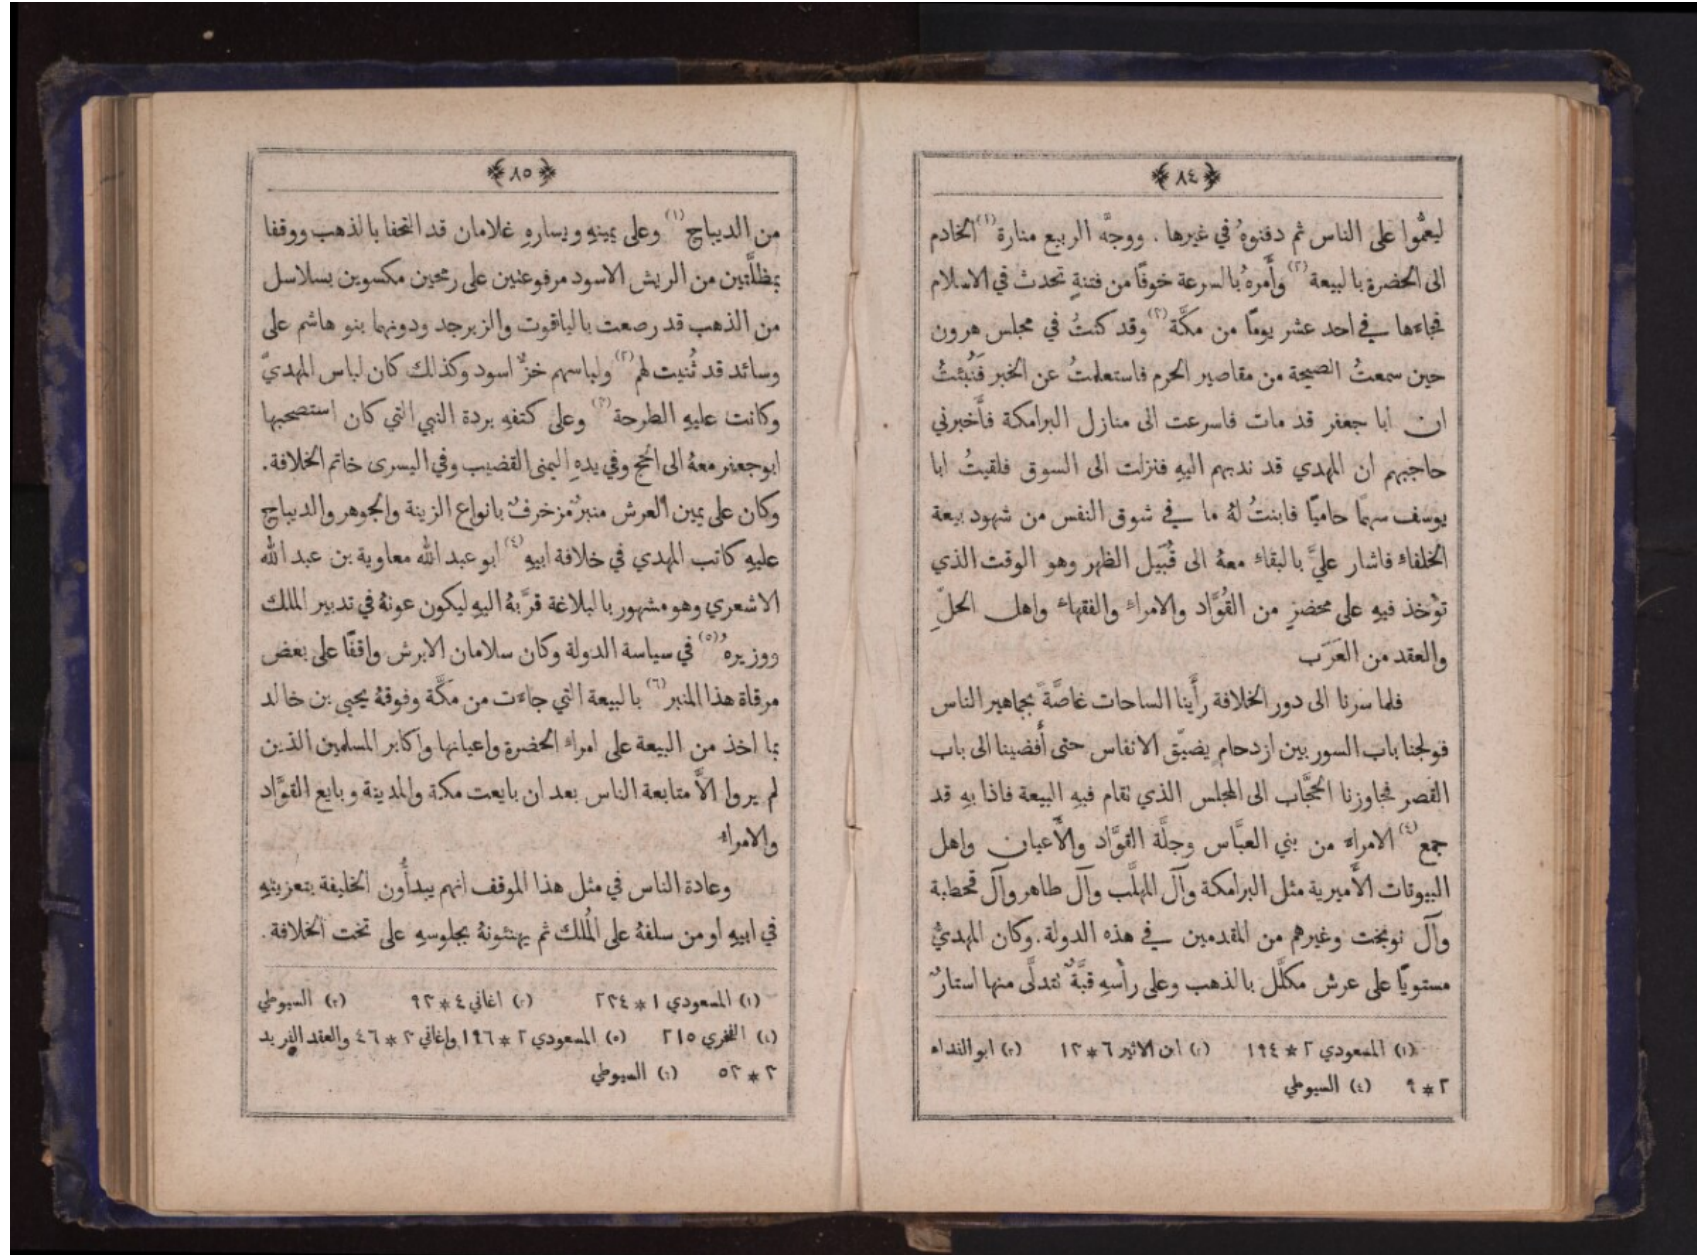 ﴿ ٨٤ ﴾
ليعمُّوا على الناس ثم دفنوهُ في غيرها . ووجَّه الربيع منارة (١) الخادم
الى الحضرة بالبيعة (٢) وأَمرهُ بالسرعة خوفًا من فتنةٍ تحدث في الاسلام
فجاءها في احد عشر يومًا من مكَّة (٣) وقد كنتُ في مجلس هرون
حين سمعتُ الصيحة من مقاصير الحرم فاستعلمتُ عن الخبر فَنُبئتُ
ان ابا جعفر قد مات فاسرعت الى منازل البرامكة فأَخبرني
حاجبهم ان المهدي قد ندبهم اليهِ فنزلت الى السوق فلقيتُ ابا
يوسف سهمًا حاميًا فابنتُ لهُ ما في شوق النفس من شهود بيعة
الخلفاء فاشار عليَّ بالبقاء معهُ الى قُبَيل الظهر وهو الوقت الذي
تؤخذ فيهِ على محضرٍ من القُوَّاد والامراء والفقهاء واهل الحلِّ
والعقد من العَرَب
فلما سرنا الى دور الخلافة رأَينا الساحات غاصَّةً بجماهير الناس
فولجنا باب السور بين ازدحامٍ يضيّق الانفاس حتى أَفضينا الى باب
القصر فجاوزنا الحجَّاب الى المجلس الذي تقام فيهِ البيعة فاذا بهِ قد
جمع (٤) الامراء من بني العبَّاس وجلَّة القوَّاد والأَعيان واهل
البيوتات الأَميرية مثل البرامكة وآل المهلَّب وآل طاهر وآل قحطبة
وآل نوبخت وغيرهم من المقدمين في هذه الدولة . وكان المهديُّ
مستويًا على عرش مكلَّل بالذهب وعلى رأْسهِ قبَّةٌ تتدلَّى منها استارٌ
(١) المسعودي ٢ * ١٩٤ (٢) ابن الاثير ٦ * ١٣ (٣) ابو الفداء
٢ * ٩ (٤) السيوطي
﴿ ٨٥ ﴾
من الديباج (١) وعلى يمينهِ ويسارهِ غلامان قد التحفا بالذهب ووقفا
بمظلَّتين من الريش الاسود مرفوعتين على رمحين مكسوين بسلاسل
من الذهب قد رصعت بالياقوت والزبرجد ودونهما بنو هاشم على
وسائد قد ثُنيت لهم (٢) ولباسهم خزٌّ اسود وكذلك كان لباس المهديّ
وكانت عليهِ الطرحة (٣) وعلى كتفهِ بردة النبي التي كان استصحبها
ابو جعفر معهُ الى الحج وفي يدهِ اليمنى القضيب وفي اليسرى خاتم الخلافة .
وكان على يمين العرش منبرٌ مزخرفٌ بانواع الزينة والجوهر والديباج
عليهِ كاتب المهدي في خلافة ابيهِ (٤) ابو عبد الله معاوية بن عبد الله
الاشعري وهو مشهور بالبلاغة قرَّبهُ اليهِ ليكون عونهُ في تدبير الملك
ووزيرهُ (٥) في سياسة الدولة وكان سلامان الابرش واقفًا على بعض
مرقاة هذا المنبر (٦) بالبيعة التي جاءت من مكَّة وفوقهُ يحيى بن خالد
بما اخذ من البيعة على امراء الحضرة واعيانها واكابر المسلمين الذين
لم يروا الاَّ متابعة الناس بعد ان بايعت مكة والمدينة وبايع القوَّاد
والامراء
وعادة الناس في مثل هذا الموقف انهم يبدأُون الخليفة بتعزيتهِ
في ابيهِ او من سلفهُ على المُلك ثم يهنئونهُ بجلوسهِ على تخت الخلافة .
(١) المسعودي ١ * ٢٣٤ (٢) اغاني ٤ * ٩٣ (٣) السيوطي
(٤) الفخري ٢١٥ (٥) المسعودي ٢ * ١٩٦ واغاني ٣ * ٤٦ والعقد الفريد
٣ * ٥٢ (٦) السيوطي